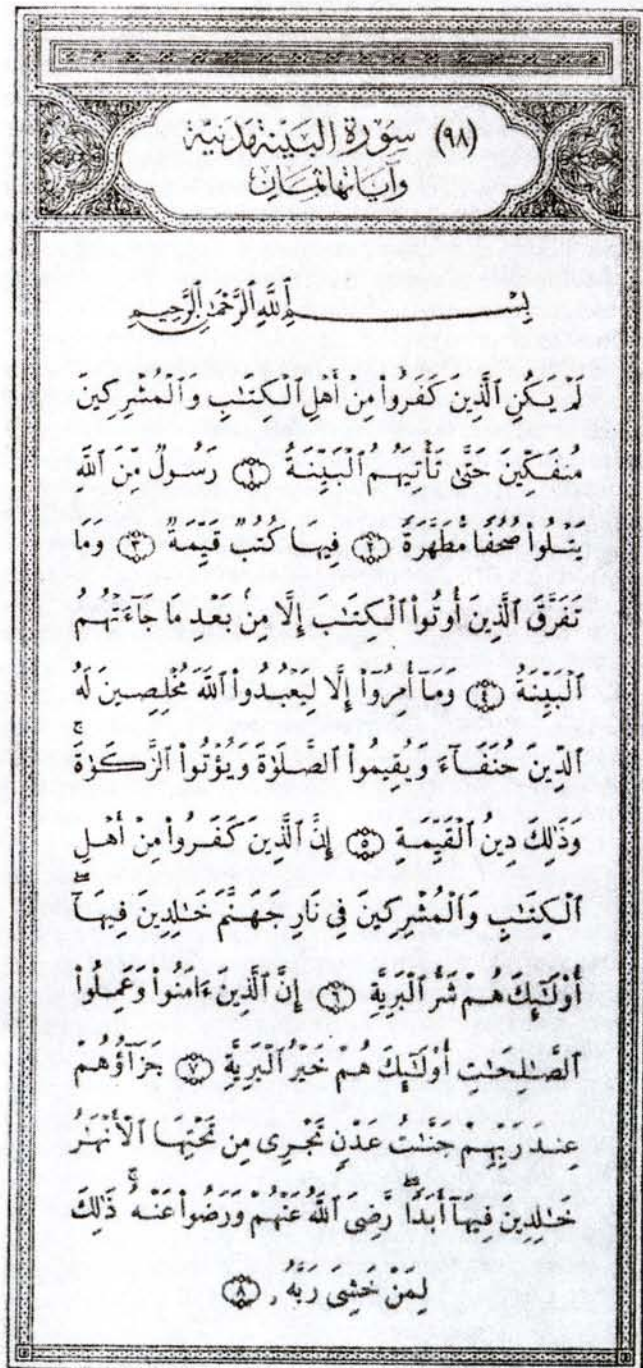 (٩٨) سورة البينة مدنية
وآياتها ثمان
بِسْمِ ٱللَّهِ ٱلرَّحْمَٰنِ ٱلرَّحِيمِ
لَمْ يَكُنِ ٱلَّذِينَ كَفَرُوا۟ مِنْ أَهْلِ ٱلْكِتَٰبِ وَٱلْمُشْرِكِينَ
مُنفَكِّينَ حَتَّىٰ تَأْتِيَهُمُ ٱلْبَيِّنَةُ ۝١ رَسُولٌ مِّنَ ٱللَّهِ
يَتْلُوا۟ صُحُفًا مُّطَهَّرَةً ۝٢ فِيهَا كُتُبٌ قَيِّمَةٌ ۝٣ وَمَا
تَفَرَّقَ ٱلَّذِينَ أُوتُوا۟ ٱلْكِتَٰبَ إِلَّا مِنۢ بَعْدِ مَا جَآءَتْهُمُ
ٱلْبَيِّنَةُ ۝٤ وَمَآ أُمِرُوٓا۟ إِلَّا لِيَعْبُدُوا۟ ٱللَّهَ مُخْلِصِينَ لَهُ
ٱلدِّينَ حُنَفَآءَ وَيُقِيمُوا۟ ٱلصَّلَوٰةَ وَيُؤْتُوا۟ ٱلزَّكَوٰةَۚ
وَذَٰلِكَ دِينُ ٱلْقَيِّمَةِ ۝٥ إِنَّ ٱلَّذِينَ كَفَرُوا۟ مِنْ أَهْلِ
ٱلْكِتَٰبِ وَٱلْمُشْرِكِينَ فِى نَارِ جَهَنَّمَ خَٰلِدِينَ فِيهَآۖ
أُو۟لَٰٓئِكَ هُمْ شَرُّ ٱلْبَرِيَّةِ ۝٦ إِنَّ ٱلَّذِينَ ءَامَنُوا۟ وَعَمِلُوا۟
ٱلصَّٰلِحَٰتِ أُو۟لَٰٓئِكَ هُمْ خَيْرُ ٱلْبَرِيَّةِ ۝٧ جَزَآؤُهُمْ
عِندَ رَبِّهِمْ جَنَّٰتُ عَدْنٍ تَجْرِى مِن تَحْتِهَا ٱلْأَنْهَٰرُ
خَٰلِدِينَ فِيهَآ أَبَدًاۖ رَّضِىَ ٱللَّهُ عَنْهُمْ وَرَضُوا۟ عَنْهُۚ ذَٰلِكَ
لِمَنْ خَشِىَ رَبَّهُۥ ۝٨